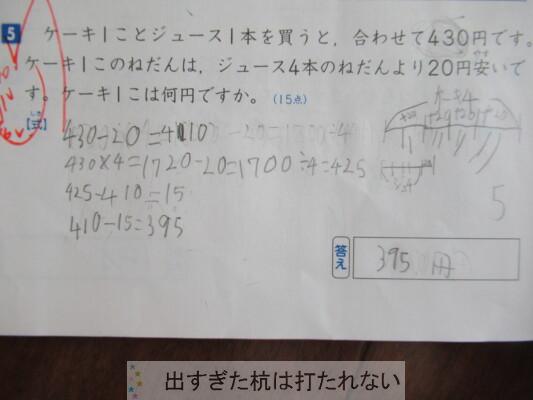 5 ケーキ1ことジュース1本を買うと，合わせて430円です。
ケーキ1このねだんは，ジュース4本のねだんより20円安いで
す。ケーキ1こは何円ですか。 (15点)
[式]
430-20=410
430×4=1720-20=1700÷4=425
425-410=15
410-15=395
5
答え 395 円
出すぎた杭は打たれない